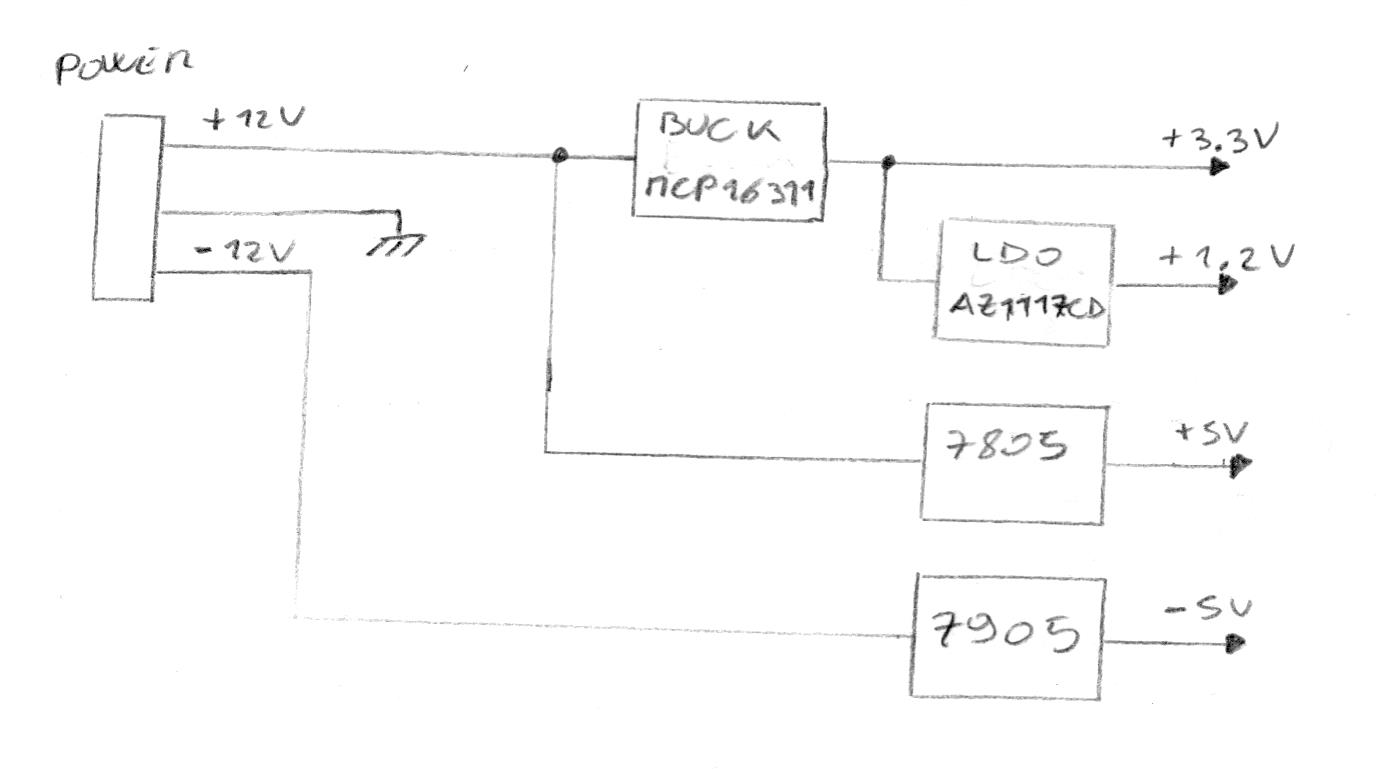 POWER
+12V
-12V
BUCK
MCP16311
+3.3V
LDO
AZ1117CD
+1.2V
7805
+5V
7905
-5V